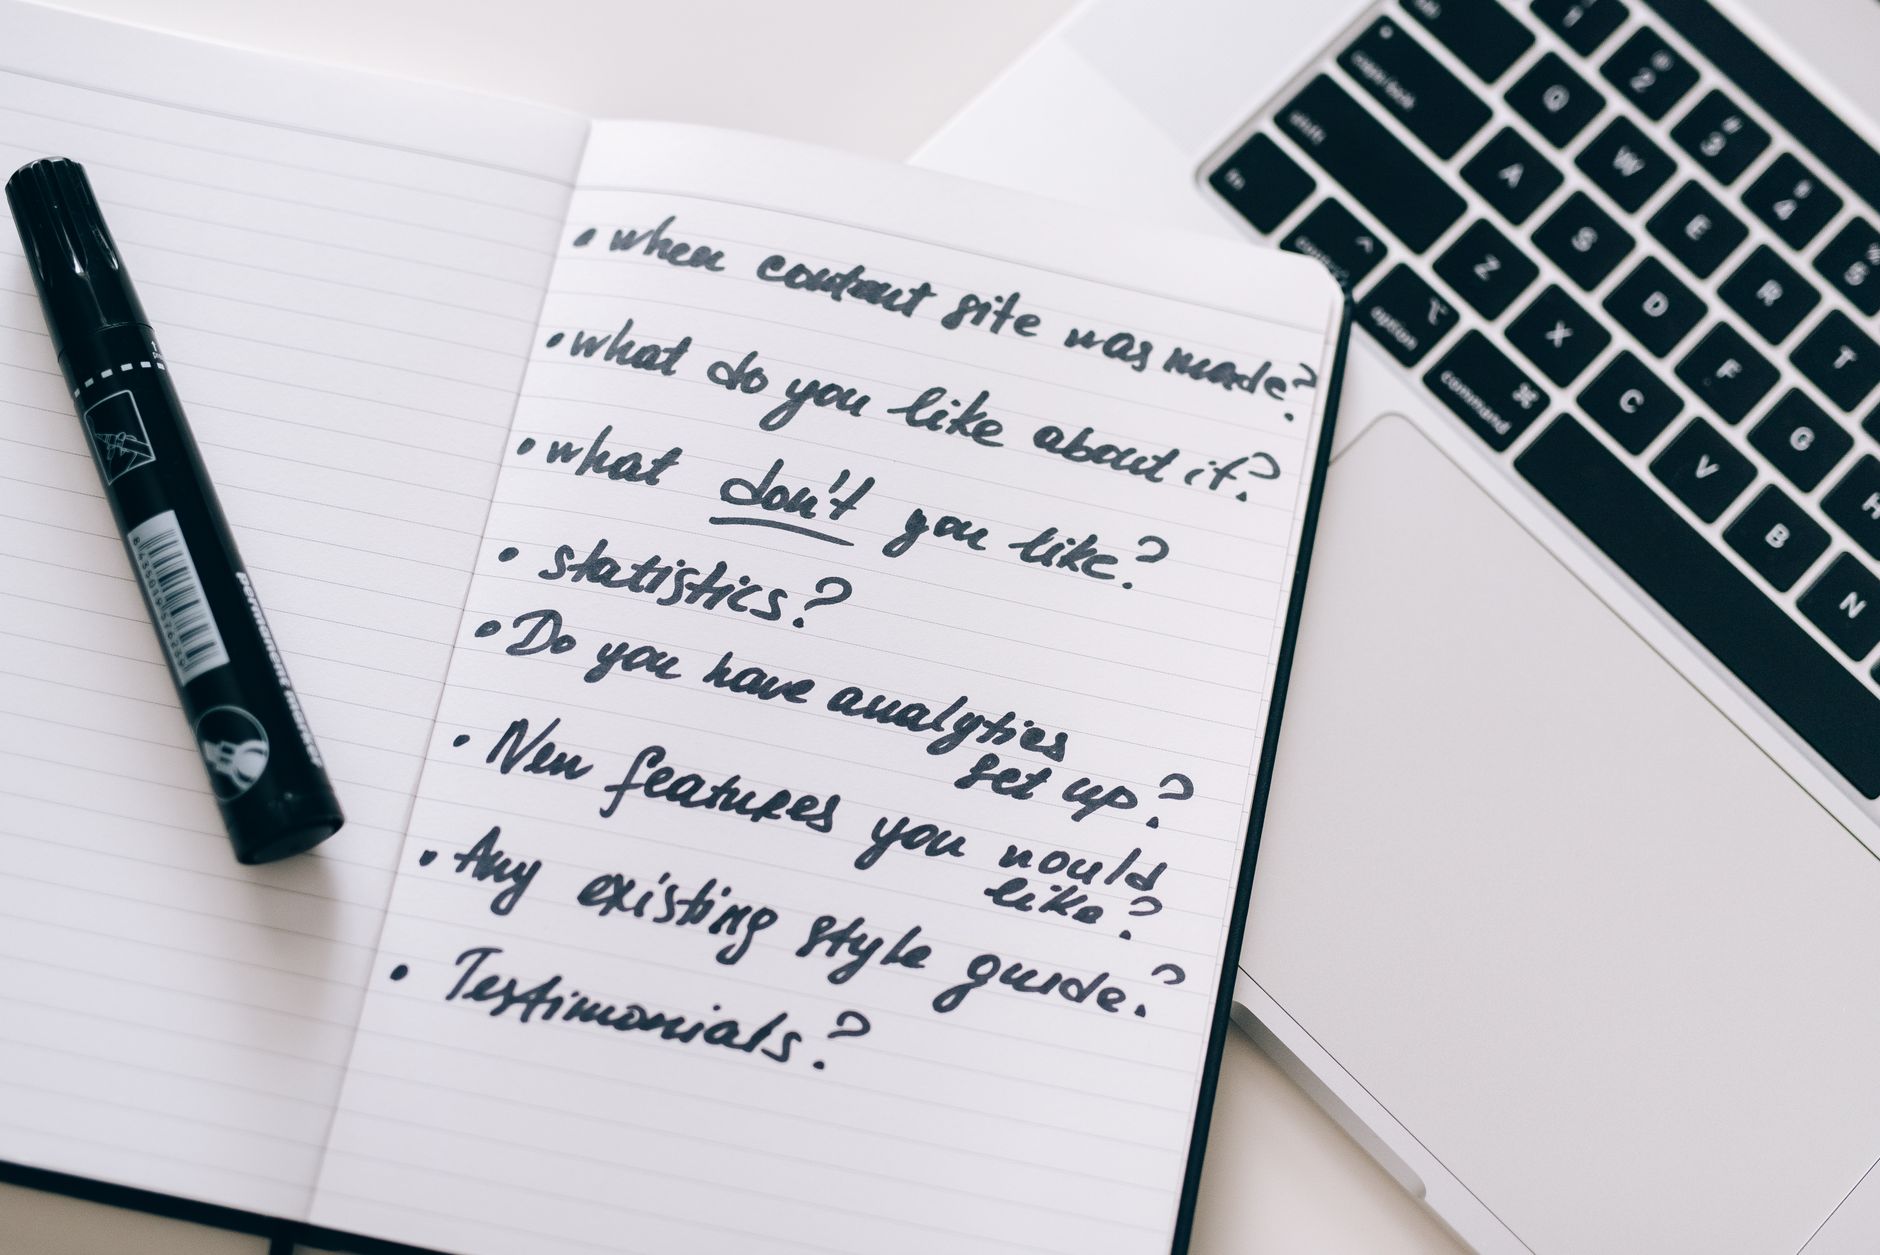 • when content site was made?
• what do you like about it?
• what don't you like?
• statistics?
• Do you have analytics
set up?
• New features you would
like?
• Any existing style guide?
• Testimonials?
permanent marker
1
@
2
#
3
4
%
5
Q
W
E
R
T
caps lock
A
S
D
F
G
H
shift
Z
X
C
V
B
N
fn
control
option
command